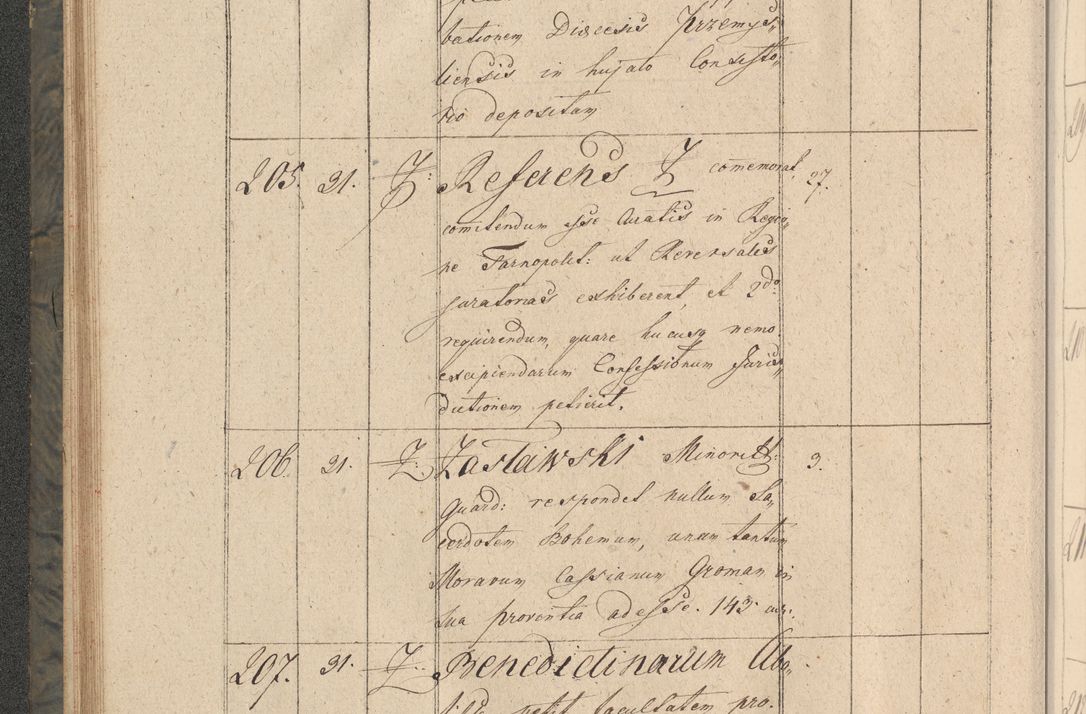 bationem Diœcesis Przemys„
liensis in hujato Consisto„
rio depositam
205. 31. Z: Referens Z comemorat 27.
comitendum esse Curatis in Regio„
ne Tarnopolit: ut Reversales
juratorias exhiberent, et 2do
requirendum, quare hucusq nemo
excipiendarum Confessionum Juris„
dictionem petierit.
206. 31. Z: Zasławski Minorit: 3.
Guard: respondet nullum Sa„
cerdotem Bohemum, unum tantum
Moravum Cassianum Groman in
sua provintia adesse. 143 cur:
207. 31. Z: Benedictinarum Abb„
petit facultatem pro.